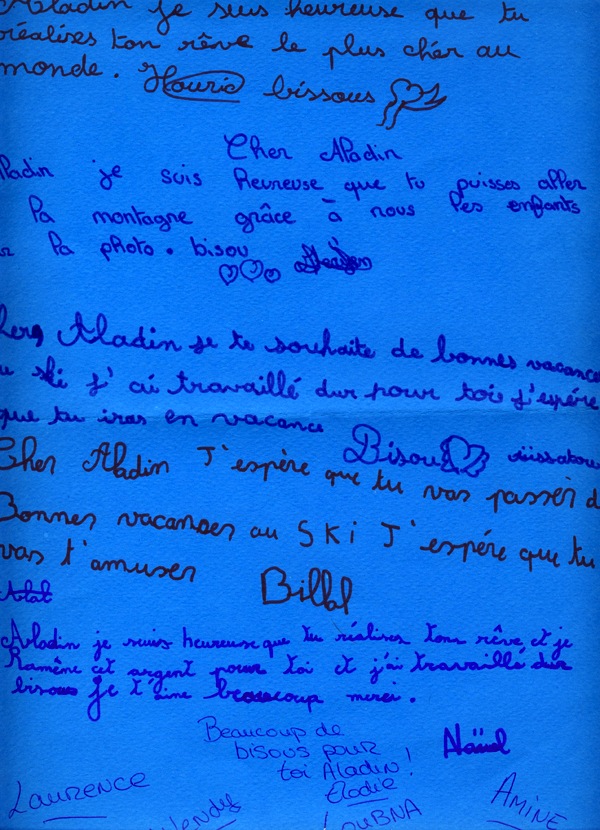 Aladin je suis heureuse que tu
réalises ton rêve le plus cher au
monde. Houria bissous
Cher Aladin
ladin je suis heureuse que tu puisses aller
la montagne grâce à nous les enfants
la photo. bisou
hers Aladin je te souhaite de bonnes vacance
ski j'ai travaillé dur pour toi j'espère
que tu iras en vacance
Bisous aissatou
Cher Aladin J'espère que tu vas passer d
Bonnes vacances au SKi J'espére que tu
vas t'amuser Billal
Aladin je suis heureuse que tu réalises tons rêve et je
Ramène cet argent pour toi et j'ai travaillé dur
bisous je t'aime beaucoup merci.
Beaucoup de
bisous pour
toi Aladin!
Elodie
Naïuel
Laurence
Wendy
LouBNA
AMiNE